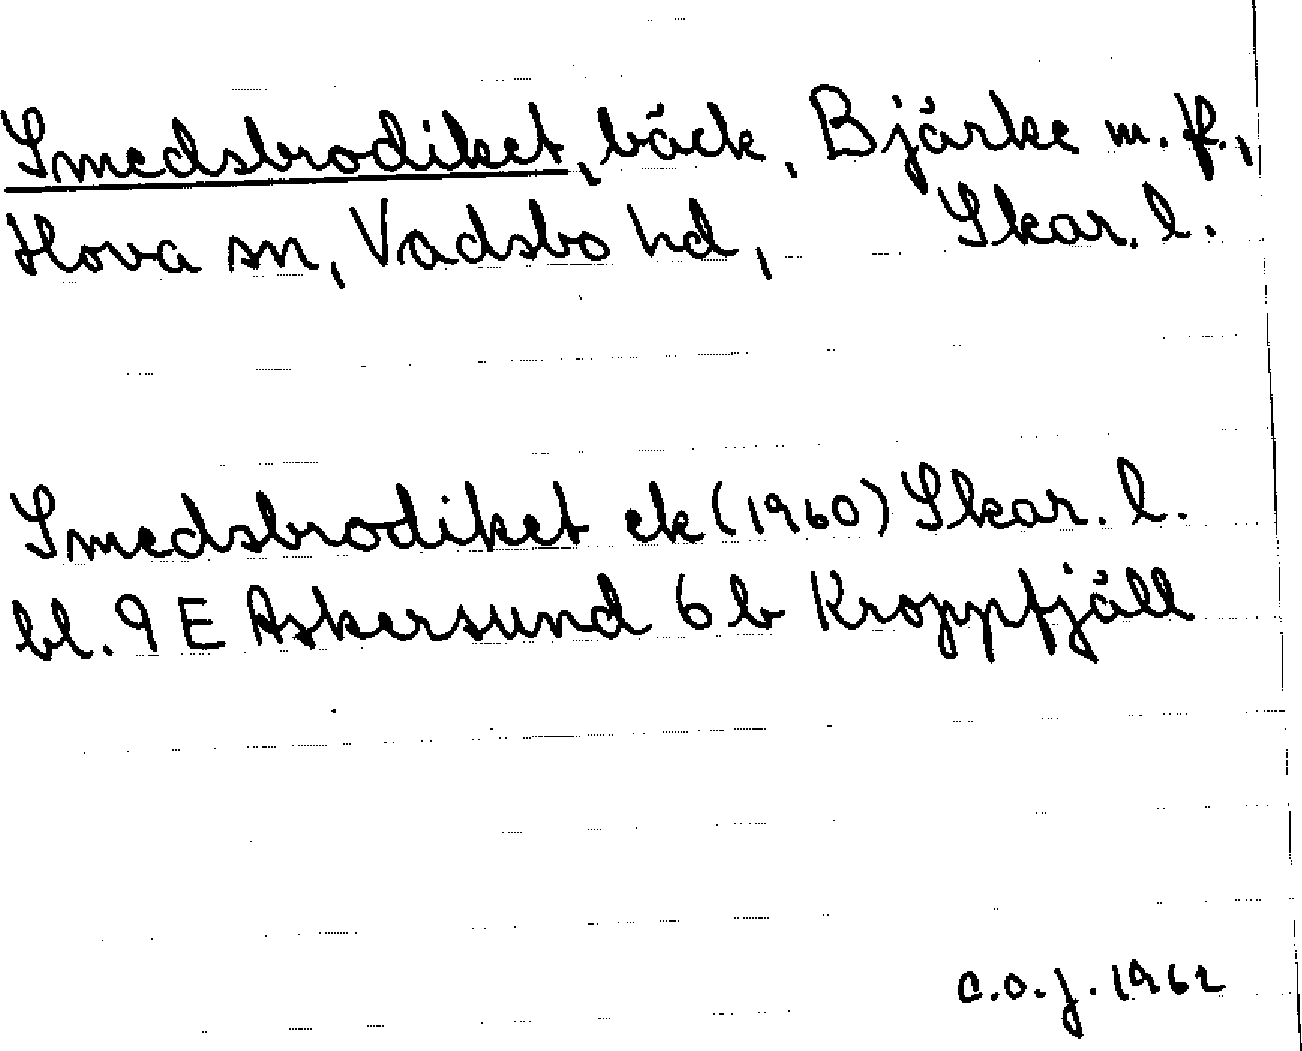 Smedsbrodiket, bäck, Bjärke m.fl.,
Hova sn, Vadsbo hd, Skar. l.
Smedsbrodiket ek (1960) Skar. l.
bl. 9 E Askersund 6 b Kroppfjäll
C.O.J. 1962